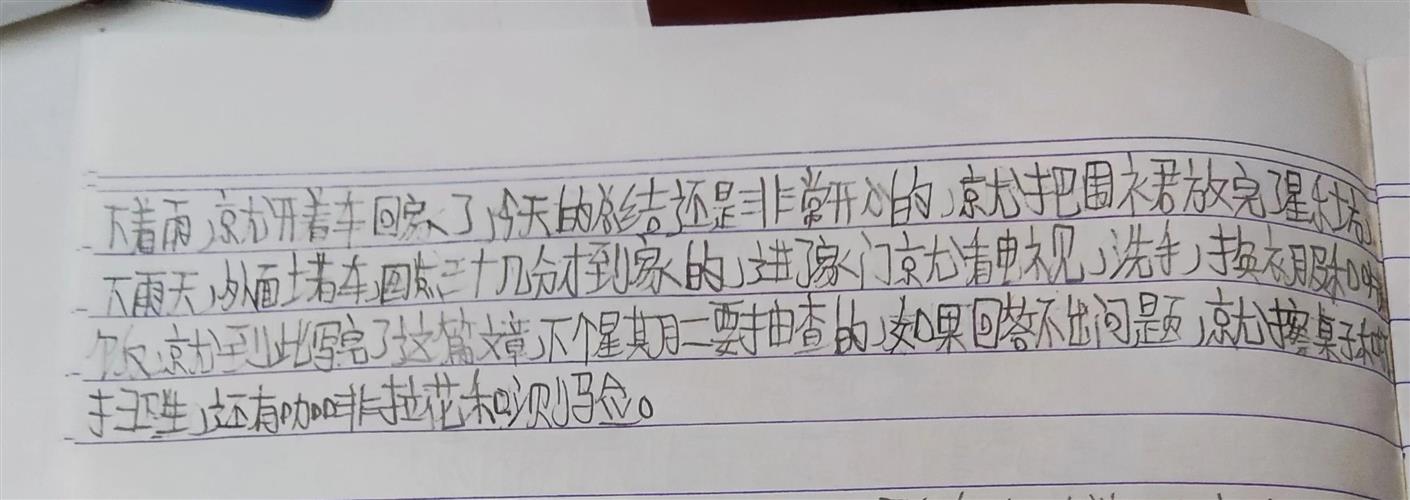 下着雨,就开着车回家了,今天的总结还是非常开心的,就把围衣君放完了星
下雨天,外面堵车,回家三十几分才到家的,进了家门就看电视,洗手,换衣服和吃
饭,就到此写完了这篇文章,下个星期二要抽查的,如果回答不出问题,就擦桌子和
扫卫生,还有咖啡拉花和测验。